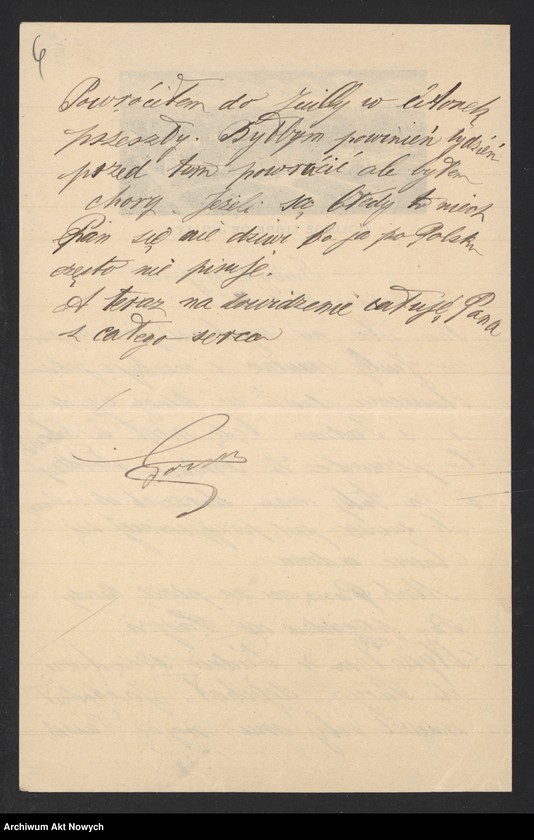 6
Powróciłem do Juilly w čtvonek
przeszły. Byłbym powinień tydzień
przed tem powrócić ale byłem
chory. Jeżeli są błędy to niech
Pan się nie dziwi bo ja po Polsku
często nie piszę.
A teraz na dowidzenie całuję Pana
z całego serca
Archiwum Akt Nowych